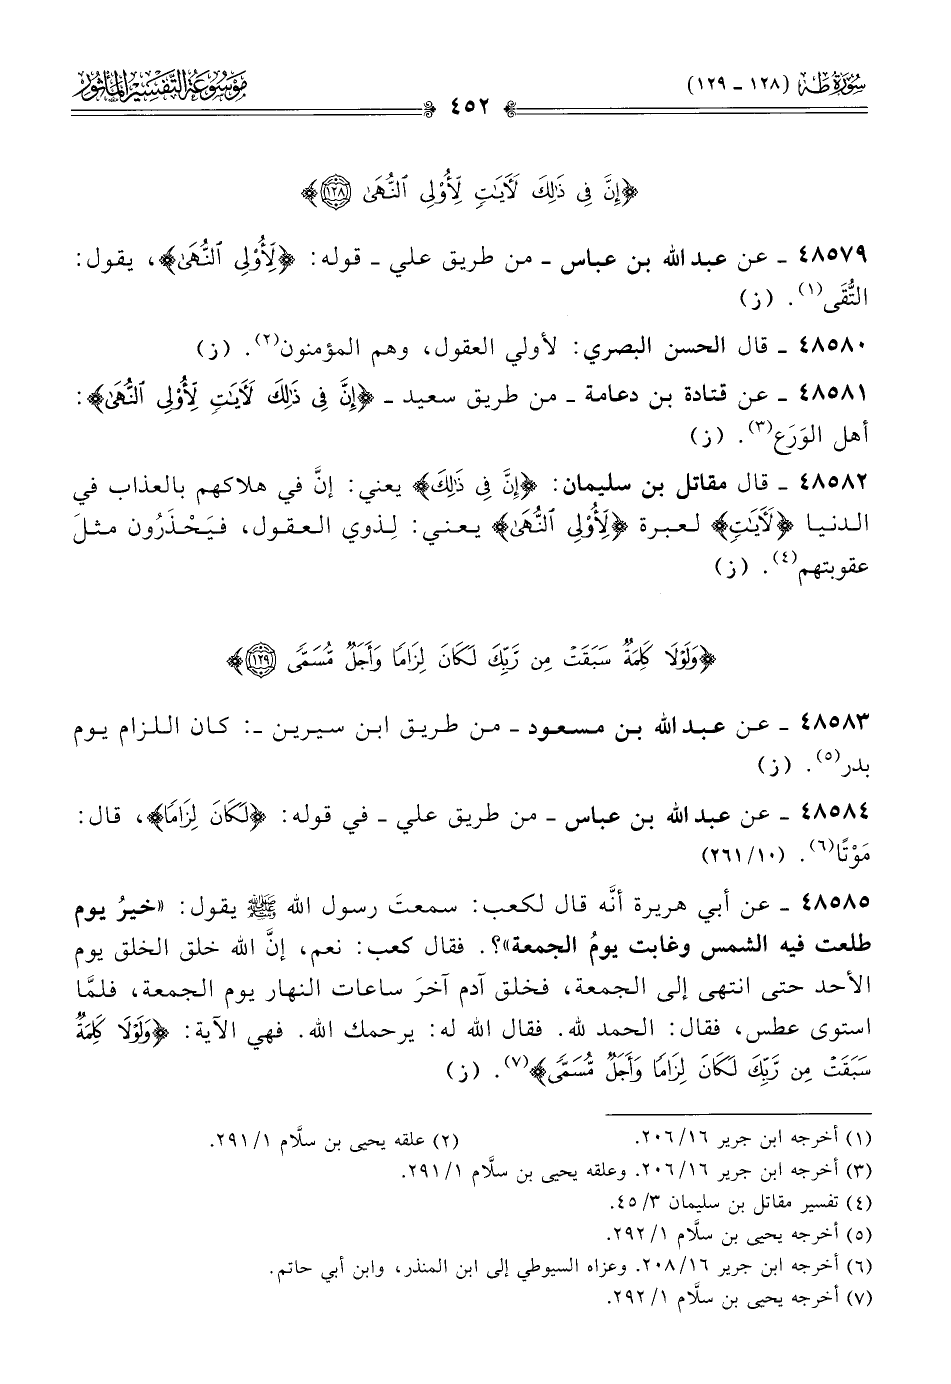 سُورَةُ طٰهٰ (١٢٨ - ١٢٩)
٤٥٢
مَوْسُوعَةُ التَّفْسِيرِ المَأْثُورِ
﴿إِنَّ فِي ذَٰلِكَ لَأٓيَٰتٖ لِّأُوْلِي ٱلنُّهَىٰ ١٢٨﴾
٤٨٥٧٩ - عن عبد الله بن عباس - من طريق علي - قوله: ﴿لِّأُوْلِي ٱلنُّهَىٰ﴾، يقول:
التُّقَى(١). (ز)
٤٨٥٨٠ - قال الحسن البصري: لأولي العقول، وهم المؤمنون(٢). (ز)
٤٨٥٨١ - عن قتادة بن دعامة - من طريق سعيد - ﴿إِنَّ فِي ذَٰلِكَ لَأٓيَٰتٖ لِّأُوْلِي ٱلنُّهَىٰ﴾:
أهل الوَرَع(٣). (ز)
٤٨٥٨٢ - قال مقاتل بن سليمان: ﴿إِنَّ فِي ذَٰلِكَ﴾ يعني: إنَّ في هلاكهم بالعذاب في
الدنيا ﴿لَأٓيَٰتٖ﴾ لعبرة ﴿لِّأُوْلِي ٱلنُّهَىٰ﴾ يعني: لِذوي العقول، فيَحْذَرُون مثلَ
عقوبتهم(٤). (ز)
﴿وَلَوْلَا كَلِمَةٌ سَبَقَتْ مِن رَّبِّكَ لَكَانَ لِزَامًا وَأَجَلٌ مُّسَمًّى ١٢٩﴾
٤٨٥٨٣ - عن عبد الله بن مسعود - من طريق ابن سيرين -: كان اللزام يوم
بدر(٥). (ز)
٤٨٥٨٤ - عن عبد الله بن عباس - من طريق علي - في قوله: ﴿لَكَانَ لِزَامًا﴾، قال:
مَوْتًا(٦). (١٠/ ٢٦١)
٤٨٥٨٥ - عن أبي هريرة أنَّه قال لكعب: سمعتَ رسول الله ﷺ يقول: «خيرُ يوم
طلعت فيه الشمس وغابت يومُ الجمعة»؟. فقال كعب: نعم، إنَّ الله خلق الخلق يوم
الأحد حتى انتهى إلى الجمعة، فخلق آدم آخرَ ساعات النهار يوم الجمعة، فلمَّا
استوى عطس، فقال: الحمد لله. فقال الله له: يرحمك الله. فهي الآية: ﴿وَلَوْلَا كَلِمَةٌ
سَبَقَتْ مِن رَّبِّكَ لَكَانَ لِزَامًا وَأَجَلٌ مُّسَمًّى﴾(٧). (ز)
(١) أخرجه ابن جرير ١٦/ ٢٠٦. (٢) علقه يحيى بن سلَّام ١/ ٢٩١.
(٣) أخرجه ابن جرير ١٦/ ٢٠٦. وعلقه يحيى بن سلَّام ١/ ٢٩١.
(٤) تفسير مقاتل بن سليمان ٣/ ٤٥.
(٥) أخرجه يحيى بن سلَّام ١/ ٢٩٢.
(٦) أخرجه ابن جرير ١٦/ ٢٠٨. وعزاه السيوطي إلى ابن المنذر، وابن أبي حاتم.
(٧) أخرجه يحيى بن سلَّام ١/ ٢٩٢.